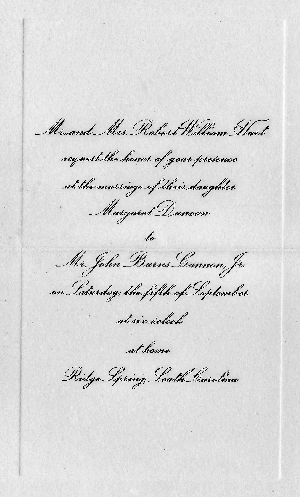 Mr. and Mrs. Robert William Hunt
request the honor of your presence
at the marriage of their daughter
Margaret Duncan
to
Mr. John Burns Cannon, Jr.
on Saturday, the fifth of September
at six oclock
at home
Ridge Spring, South Carolina